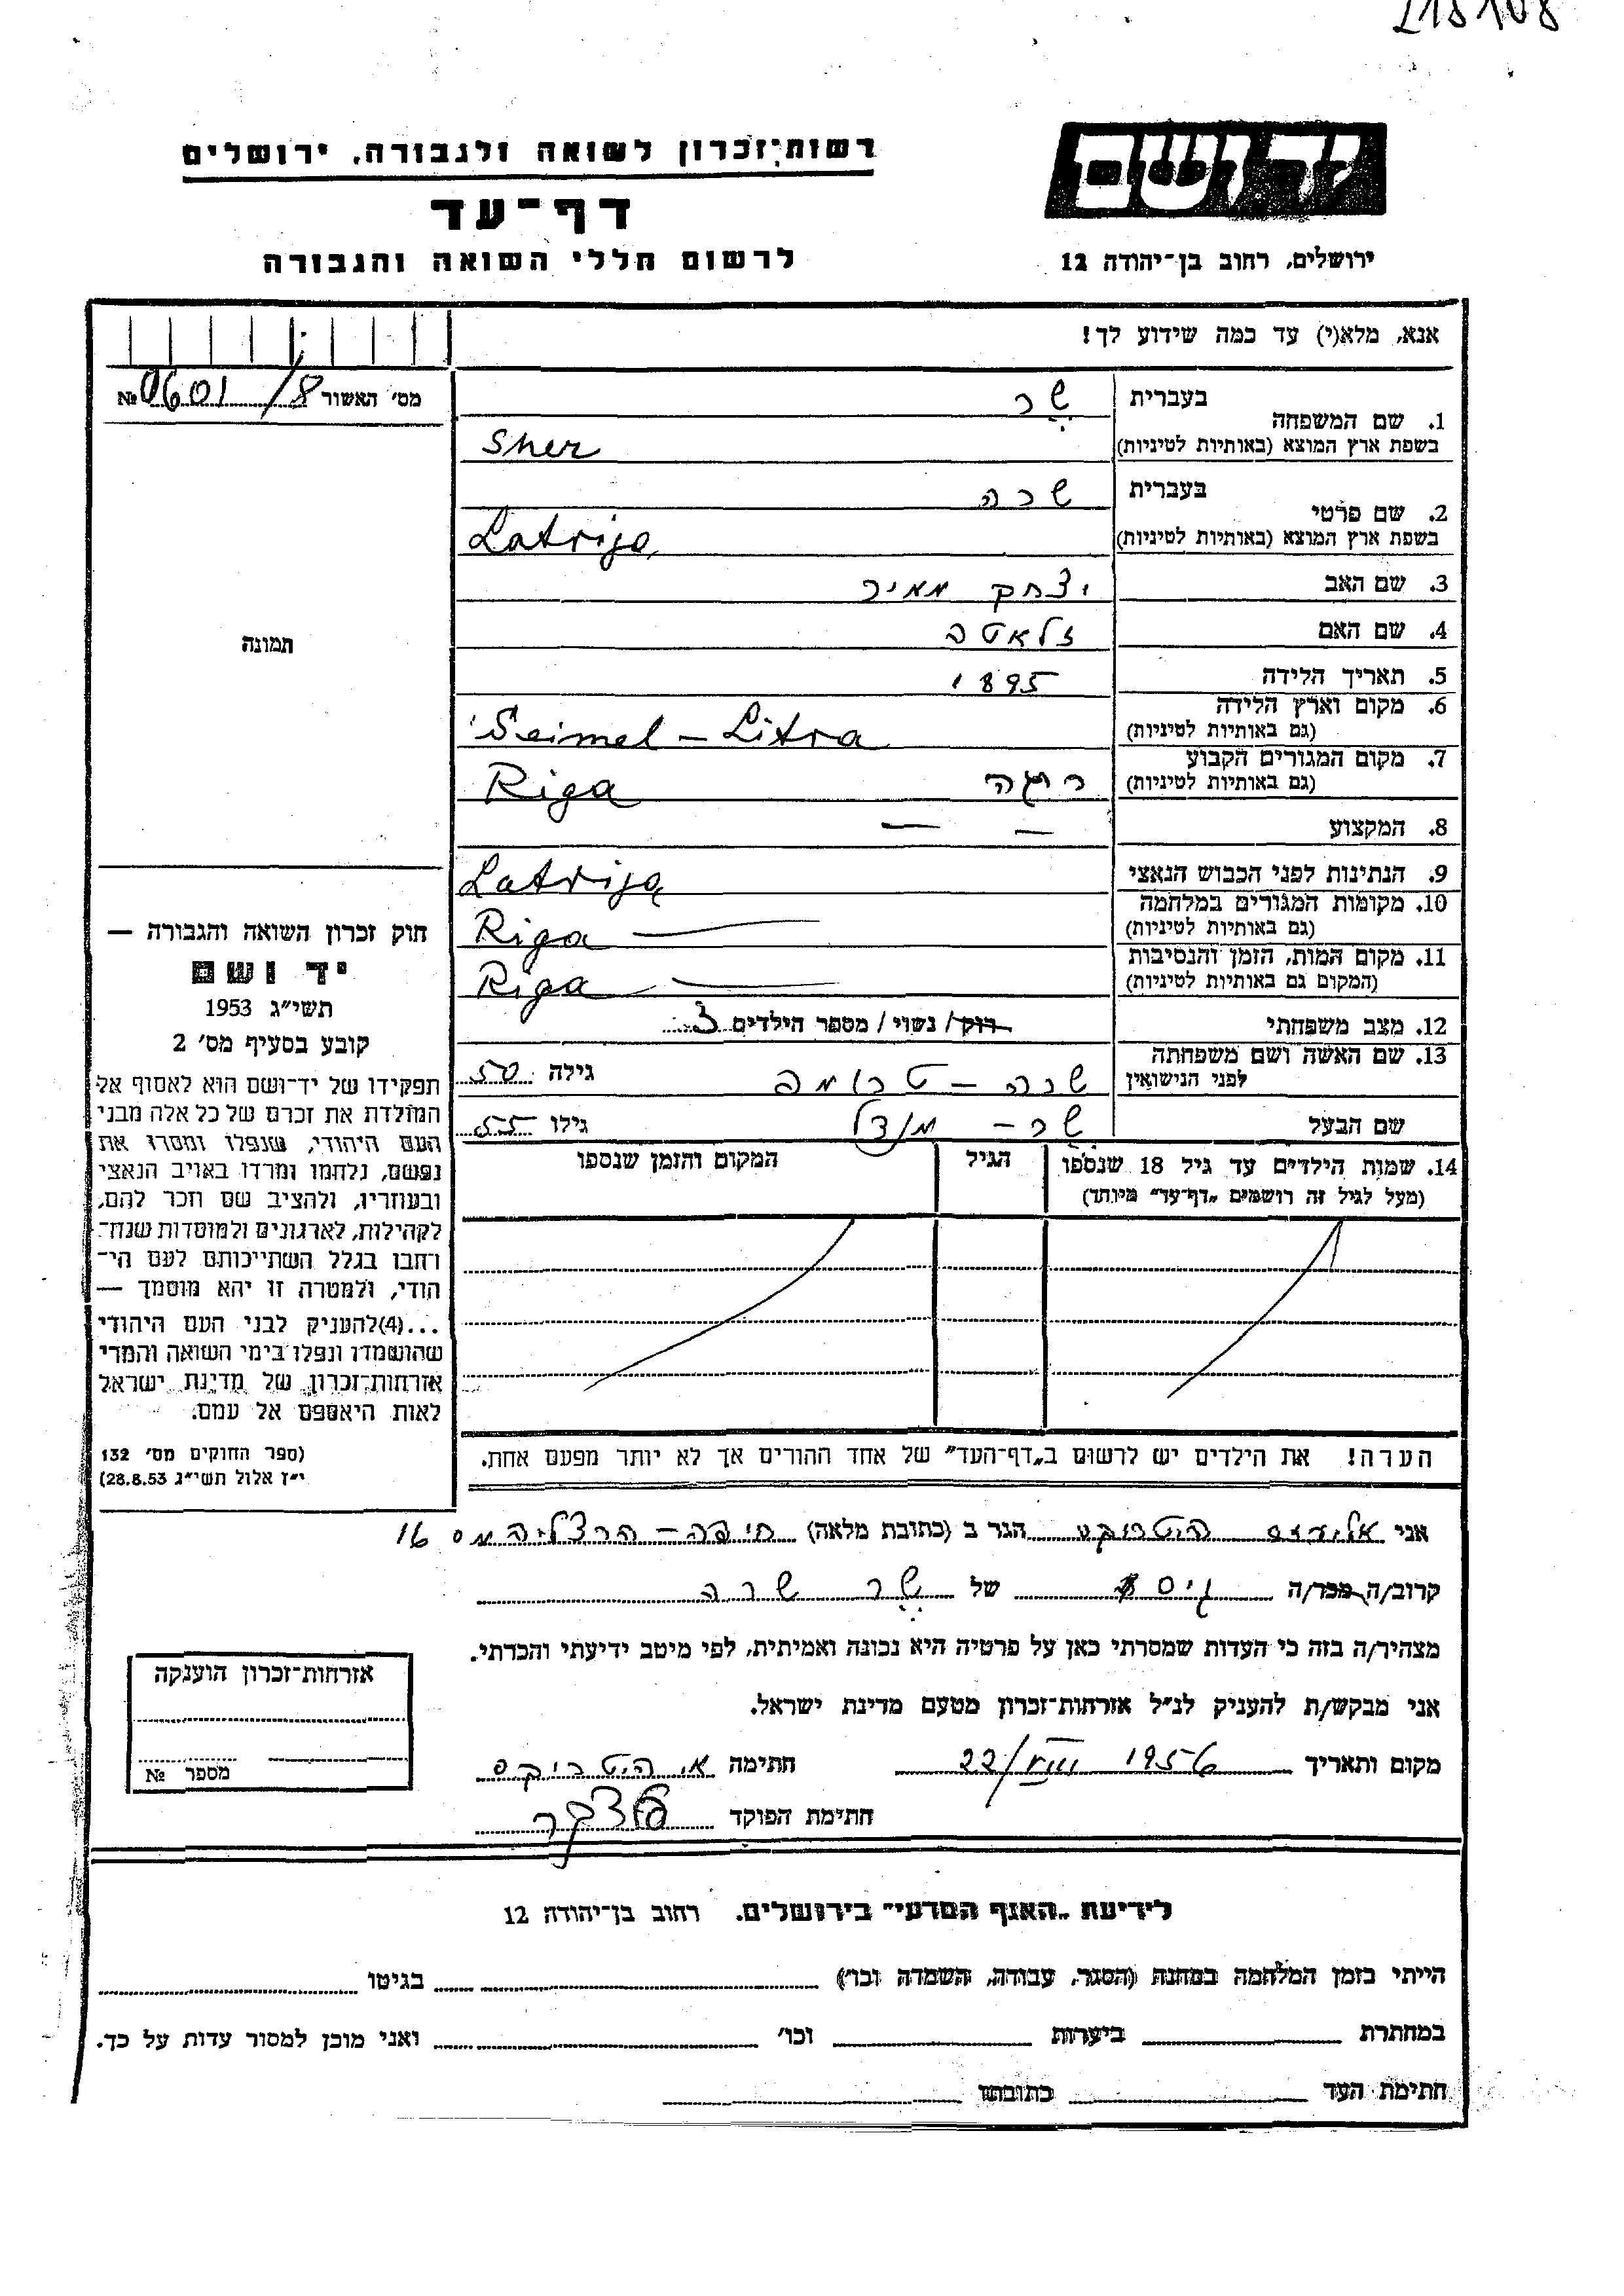 218108
יד ושם
רשות־זכרון לשואה ולגבורה, ירושלים
דף־עד
לרשום חללי השואה והגבורה
ירושלים, רחוב בן־יהודה 12
אנא, מלא(י) עד כמה שידוע לך!
מס׳ האשור 8/0601 №
1. שם המשפחה
בעברית שר
בשפת ארץ המוצא (באותיות לטיניות) Sher
2. שם פרטי
בעברית שרה
בשפת ארץ המוצא (באותיות לטיניות) Latvija
3. שם האב יצחק מאיר
4. שם האם זלאטה
5. תאריך הלידה 1895
6. מקום וארץ הלידה
(גם באותיות לטיניות) Seimel – Litva
7. מקום המגורים הקבוע
(גם באותיות לטיניות) ריגה Riga
8. המקצוע — —
9. הנתינות לפני הכבוש הנאצי Latvija
10. מקומות המגורים במלחמה
(גם באותיות לטיניות) Riga —
11. מקום המות, הזמן והנסיבות
(המקום גם באותיות לטיניות) Riga —
12. מצב משפחתי רוק/ נשוי/ מספר הילדים 3
13. שם האשה ושם משפחתה
לפני הנישואין שרה – טרומפ גילה 50
שם הבעל שר – מנדל גילו 55
14. שמות הילדים עד גיל 18 שנספו
(מעל לגיל זה רושמים „דף־עד״ מיוחד)
הגיל
המקום והזמן שנספו
הערה! את הילדים יש לרשום ב„דף־העד״ של אחד ההורים אך לא יותר מפעם אחת.
תמונה
חוק זכרון השואה והגבורה —
יד ושם
תשי״ג 1953
קובע בסעיף מס׳ 2
תפקידו של יד־ושם הוא לאסוף אל
המולדת את זכרם של כל אלה מבני
העם היהודי, שנפלו ומסרו את
נפשם, נלחמו ומרדו באויב הנאצי
ובעוזריו, ולהציב שם וזכר להם,
לקהילות, לארגונים ולמוסדות שנח־
רחבו בגלל השתייכותם לעם הי־
הודי, ולמטרה זו יהא מוסמך —
...(4)להעניק לבני העם היהודי
שהושמדו ונפלו בימי השואה והמרי
אזרחות־זכרון של מדינת ישראל
לאות היאספם אל עמם.
(ספר החוקים מס׳ 132
י״ז אלול תשי״ג 28.8.53)
אני הגר ב (כתובת מלאה) חיפה – הרצליה מס 16
קרוב/ה מכר/ה גיס של שר שרה
מצהיר/ה בזה כי העדות שמסרתי כאן על פרטיה היא נכונה ואמיתית, לפי מיטב ידיעתי והכרתי.
אני מבקש/ת להעניק לנ״ל אזרחות־זכרון מטעם מדינת ישראל.
מקום ותאריך 22/VIII 1956 חתימה
חתימת הפוקד
אזרחות־זכרון הוענקה
מספר №
לידיעת „האגף המדעי״ בירושלים. רחוב בן־יהודה 12
הייתי בזמן המלחמה במחנה (הסגר, עבודה, השמדה וכו׳) בגיטו
במחתרת ביערות וכו׳ ואני מוכן למסור עדות על כך.
חתימת העד כתובתו